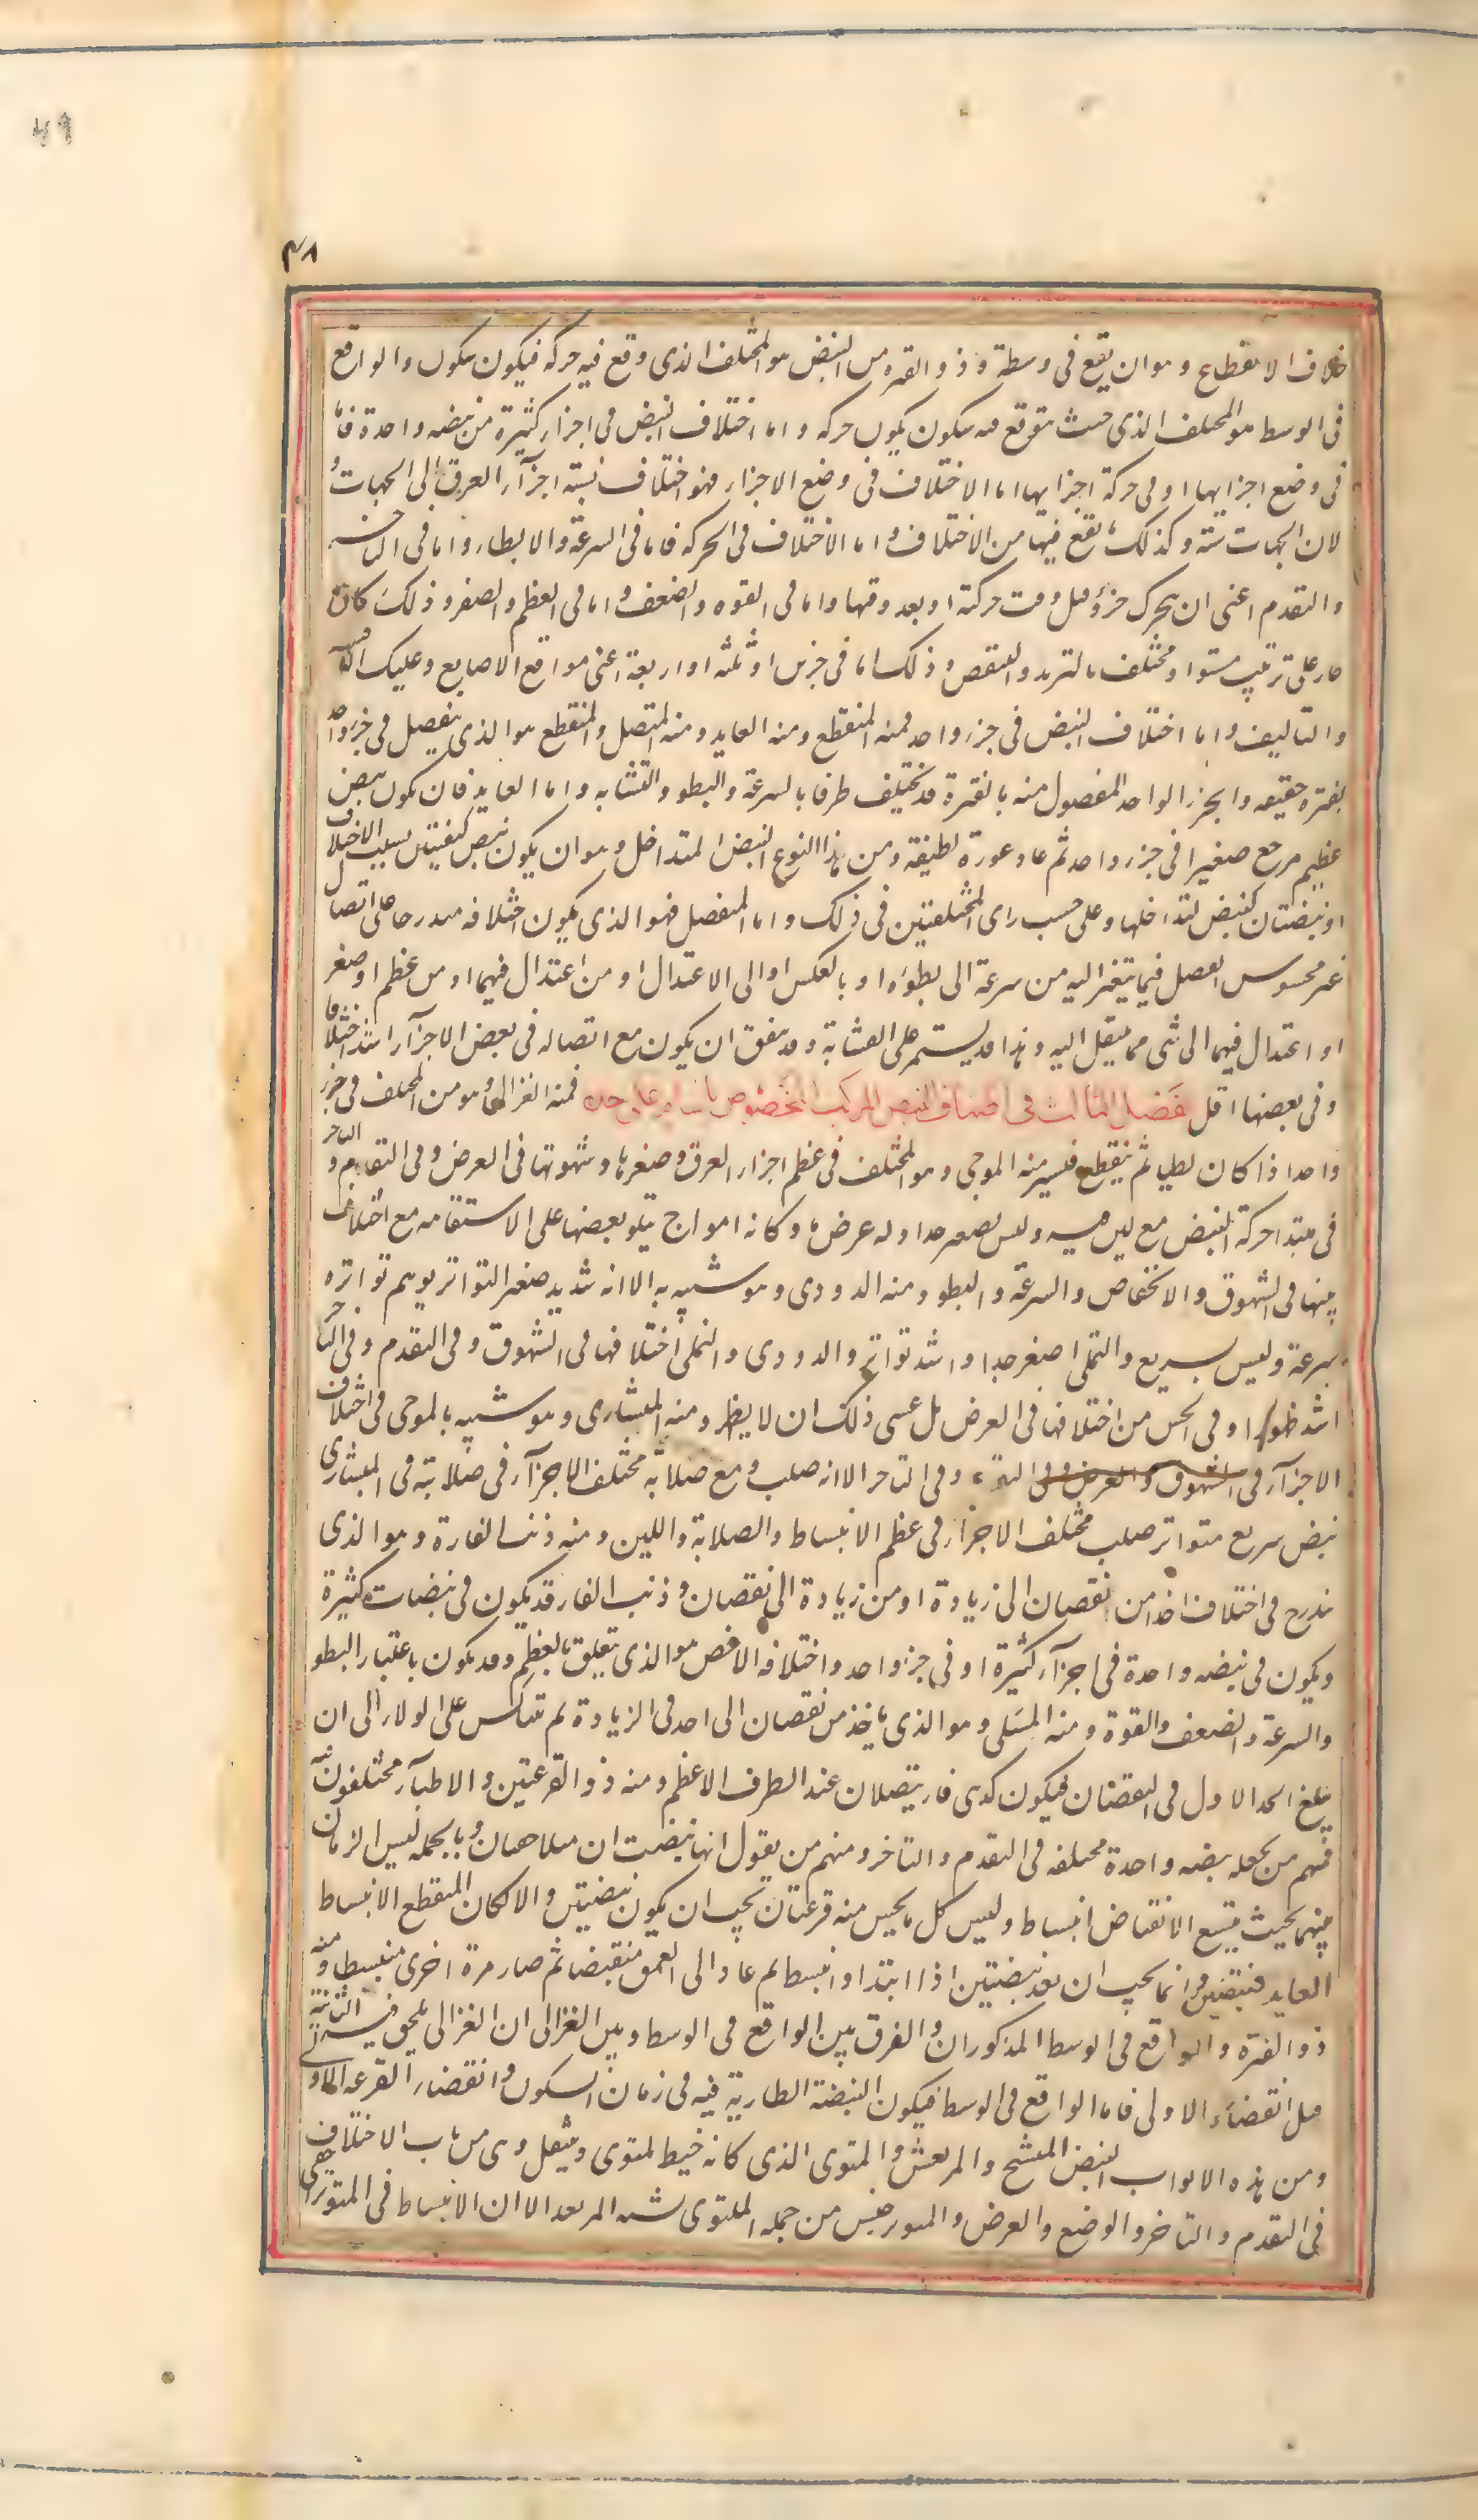 ٤٩
٤٨
خلاف الانقطاع وهو ان يقع فى وسطه وذو الفتره من النبض هو المختلف الذى وقع فيه حركه فيكون سكون والواقع
فى الوسط هو المختلف الذى حيث يتوقع فيه سكون يكون حركه واما اختلاف النبض فى اجزاء كثيرة من نبضه واحدة فاما
فى وضع اجزايها او فى حركة اجزايها اما الاختلاف فى وضع الاجزاء فهو اختلاف نسبة اجزآء العرق الى الجهات و
لان الجهات ستة وكذلك ما يقع فيها من الاختلاف واما الاختلاف فى الحركه فاما فى السرعة والابطاء واما فى التاخر
والتقدم اعنى ان يتحرك جزؤ قبل وقت حركته او بعد وقتها واما فى القوه والضعف واما فى العظم والصغر وذلك كله
جار على ترتيب مستو او مختلف بالتزيد والتنقص وذلك اما فى جزئين او ثلثه او اربعة اعنى مواقع الاصابع وعليك
والتاليف واما اختلاف النبض فى جزء واحد فمنه المنقطع ومنه العايد ومنه المتصل والمنقطع هو الذى ينفصل فى جزء واحد
بفتره حقيقيه والجزء الواحد المفصول منه بالفترة قد يختلف طرفا بالسرعة والبطو والتشابه واما العايد فان يكون نبض
عظيم رجع صغيرا فى جزء واحد ثم عاد عودة لطيفة ومن هذا النوع النبض المتداخل وهو ان يكون نبض كنبضتين بسبب الاختلاف
او نبضتان كنبض لتداخلها وعلى حسب راى المختلفين فى ذلك واما المتصل فهو الذى يكون اختلافه متدرجا على اتصال
غير محسوس الفصل فيما يتغير اليه من سرعة الى بطوء او بالعكس او الى الاعتدال او من اعتدال فيهما او من عظم او صغر
او اعتدال فيهما الى شى مما ينتقل اليه وهذا قد يستمر على التشابه وقد يتفق ان يكون مع اتصاله فى بعض الاجزآء اشد اختلافا
وفى بعضها اقل فصل الثالث فى اصناف النبض المركب المخصوص باسماء على حده فمنه الغزالى وهو من المختلف فى جزء
واحد اذا كان بطيا ثم ينقطع فيسرع ومنه الموجى وهو المختلف فى عظم اجزاء العرق وصغرها وشهوقها فى العرض وفى التقدم والتاخر
فى مبتدا حركة النبض مع لين فيه وليس بصغير جدا وله عرض ما وكانه امواج يتلو بعضها على الاستقامه مع اختلاف
بينها فى الشهوق والانخفاض والسرعة والبطو ومنه الدودى وهو شبيه به الا انه شديد صغير التواتر يوهم تواتره
سرعة وليس بسريع والنملى اصغر جدا واشد تواترا والدودى والنملى اختلافها فى الشهوق وفى التقدم وفى التاخر
اشد ظهورا وفى الحس من اختلافها فى العرض بل عسى ذلك ان لا يظهر ومنه المنشارى وهو شبيه بالموجى فى اختلاف
الاجزآء فى الشهوق والعرض وفى التقدم وفى التاخر الا انه صلب ومع صلابته مختلف الاجزآء فى صلابته فى المنشارى
نبض سريع متواتر صلب مختلف الاجزاء فى عظم الانبساط والصلابة واللين ومنه ذنب الفارة وهو الذى
يتدرج فى اختلاف اخذا من نقصان الى زيادة او من زيادة الى نقصان وذنب الفار قد يكون فى نبضات كثيرة
ويكون فى نبضه واحدة فى اجزآء كثيرة او فى جزء واحد واختلافه الاخص هو الذى يتعلق بالعظم وقد يكون باعتبار البطو
والسرعة والضعف والقوة ومنه المسلى وهو الذى ياخذ من نقصان الى احد فى الزيادة ثم يتناكس على الولاء الى ان
يبلغ الحد الاول فى النقصان فيكون كذنبى فار يتصلان عند الطرف الاعظم ومنه ذو القرعتين والاطبآء مختلفون فيه
فمنهم من يجعله نبضه واحدة مختلفه فى التقدم والتاخر ومنهم من يقول انها نبضتان متلاحقتان وبالجمله ليس الزمان
بينهما بحيث يتسع لانقباض ثم انبساط وليس كل ما يحس منه قرعتان يجب ان يكون نبضتين والا لكان المنقطع الانبساط
العايد نبضتين وانما يجب ان يعد نبضتين اذا ابتدا وانبسط ثم عاد الى العمق منقبضا ثم صار مرة اخرى منبسطا ومنه
ذو الفتره والواقع فى الوسط المذكوران والفرق بين الواقع فى الوسط وبين الغزالى ان الغزالى يلحق فيه الثانية
قبل انقضآء الاولى فاما الواقع فى الوسط فيكون النبضة الطارية فيه فى زمان السكون وانقضاء القرعه الاولى
ومن هذه الابواب النبض المتشنج والمرتعش والملتوى الذى كانه خيط يلتوى وينفتل وهى من باب الاختلاف
فى التقدم والتاخر والوضع والعرض والمتوتر جنس من جمله الملتوى يشبه المرتعد الا ان الانبساط فى المتوتر اخفى